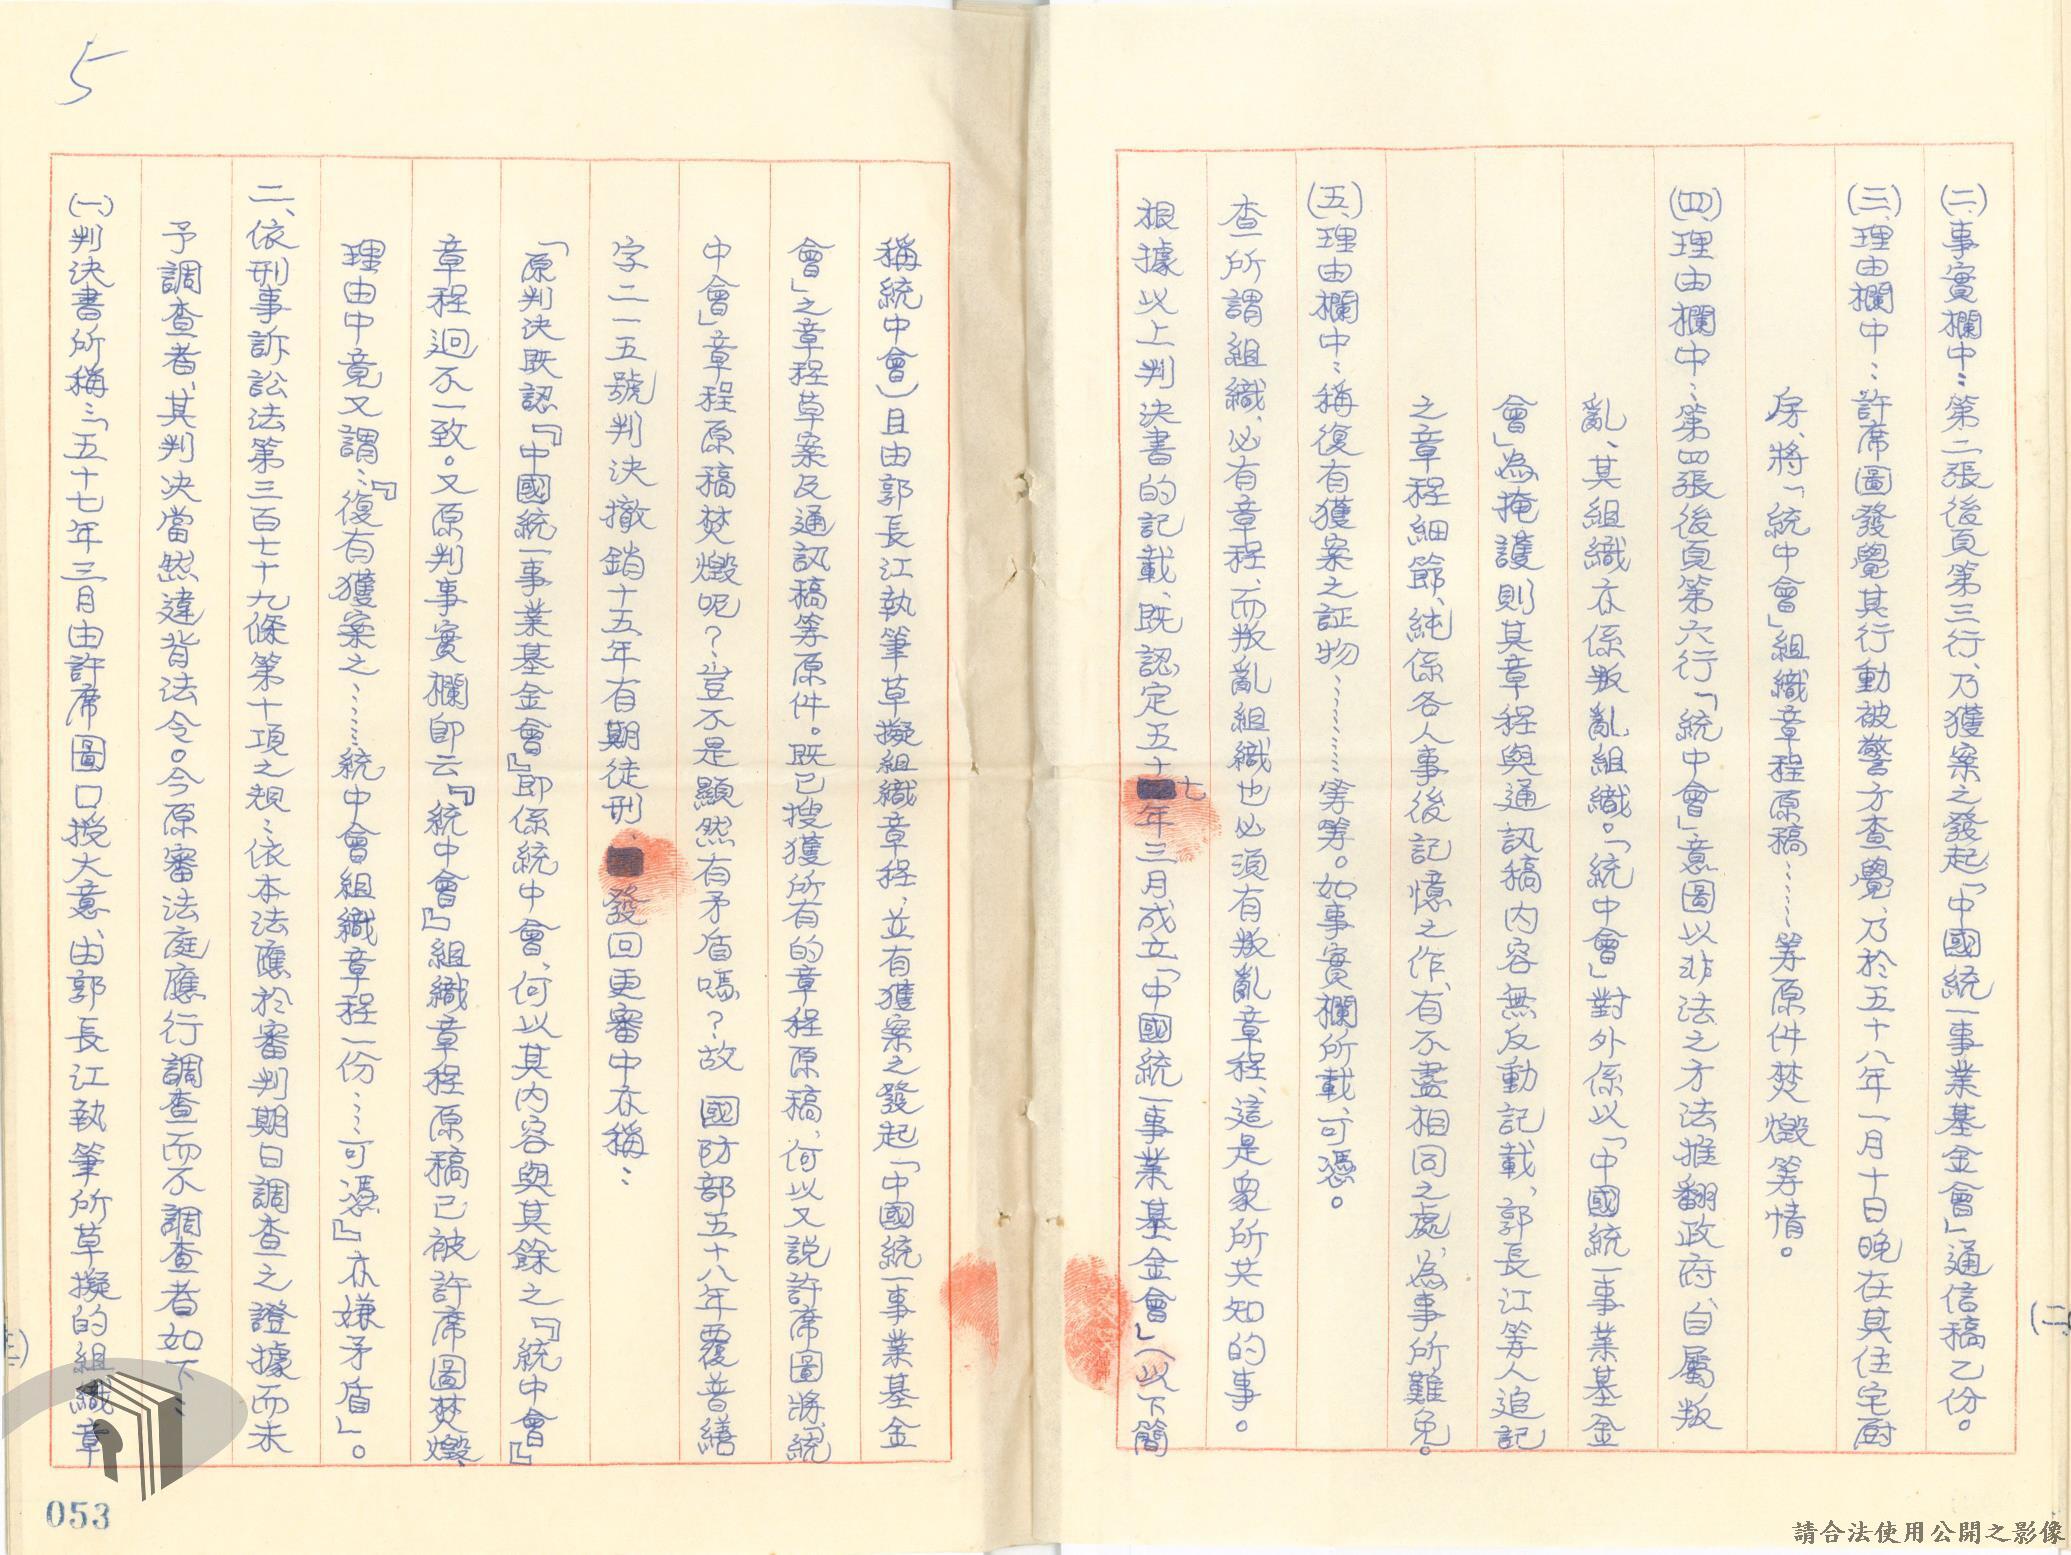 (二)、事實欄中:第二張後頁第三行、乃獲案之發起「中國統一事業基金會」通信稿乙份。
(三)、理由欄中:許席圖發覺其行動被警方查覺、乃於五十八年一月十日晚在其住宅廚
房、將「統中會」組織章程原稿……等原件焚燬等情。
(四)、理由欄中:第四張後頁第六行「統中會」意圖以非法之方法推翻政府、自屬叛
亂、其組織亦係叛亂組織。「統中會」對外係以「中國統一事業基金
會」為掩護則其章程與通訊稿內容無反動記載、郭長江等人追記
之章程細節、純係各人事後記憶之作、有不盡相同之處、為事所難免。
(五)、理由欄中:稱復有獲案之証物…………等等。如事實欄所載、可憑。
查所謂組織、必有章程、而叛亂組織也必須有叛亂章程、這是眾所共知的事。
根據以上判決書的記載、既認定五十七年三月成立「中國統一事業基金會」(以下簡
稱統中會)且由郭長江執筆草擬組織章程、並有獲案之發起「中國統一事業基金
會」之章程草案及通訊稿等原件。既已搜獲所有的章程原稿、何以又說許席圖將、統
中會」章程原稿焚燬呢?豈不是顯然有矛盾嗎?故 國防部五十八年覆普繕
字二一五號判決撤銷十五年有期徒刑、發回更審中亦稱:
「原判決既認『中國統一事業基金會』即係統中會、何以其內容與其餘之『統中會』
章程迥不一致。又原判事實欄即云『統中會』組織章程原稿已被許席圖焚燬、
理由中竟又謂:『復有獲案之……統中會組織章程一份……可憑』亦嫌矛盾」。
二、依刑事訴訟法第三百七十九條第十項之規:依本法應於審判期日調查之證據而未
予調查者、其判決當然違背法令。今原審法庭應行調查而不調查者如下:
(一)、判決書所稱:「五十七年三月由許席圖口授大意、由郭長江執筆所草擬的組織章
5
(二)
053
請合法使用公開之影像